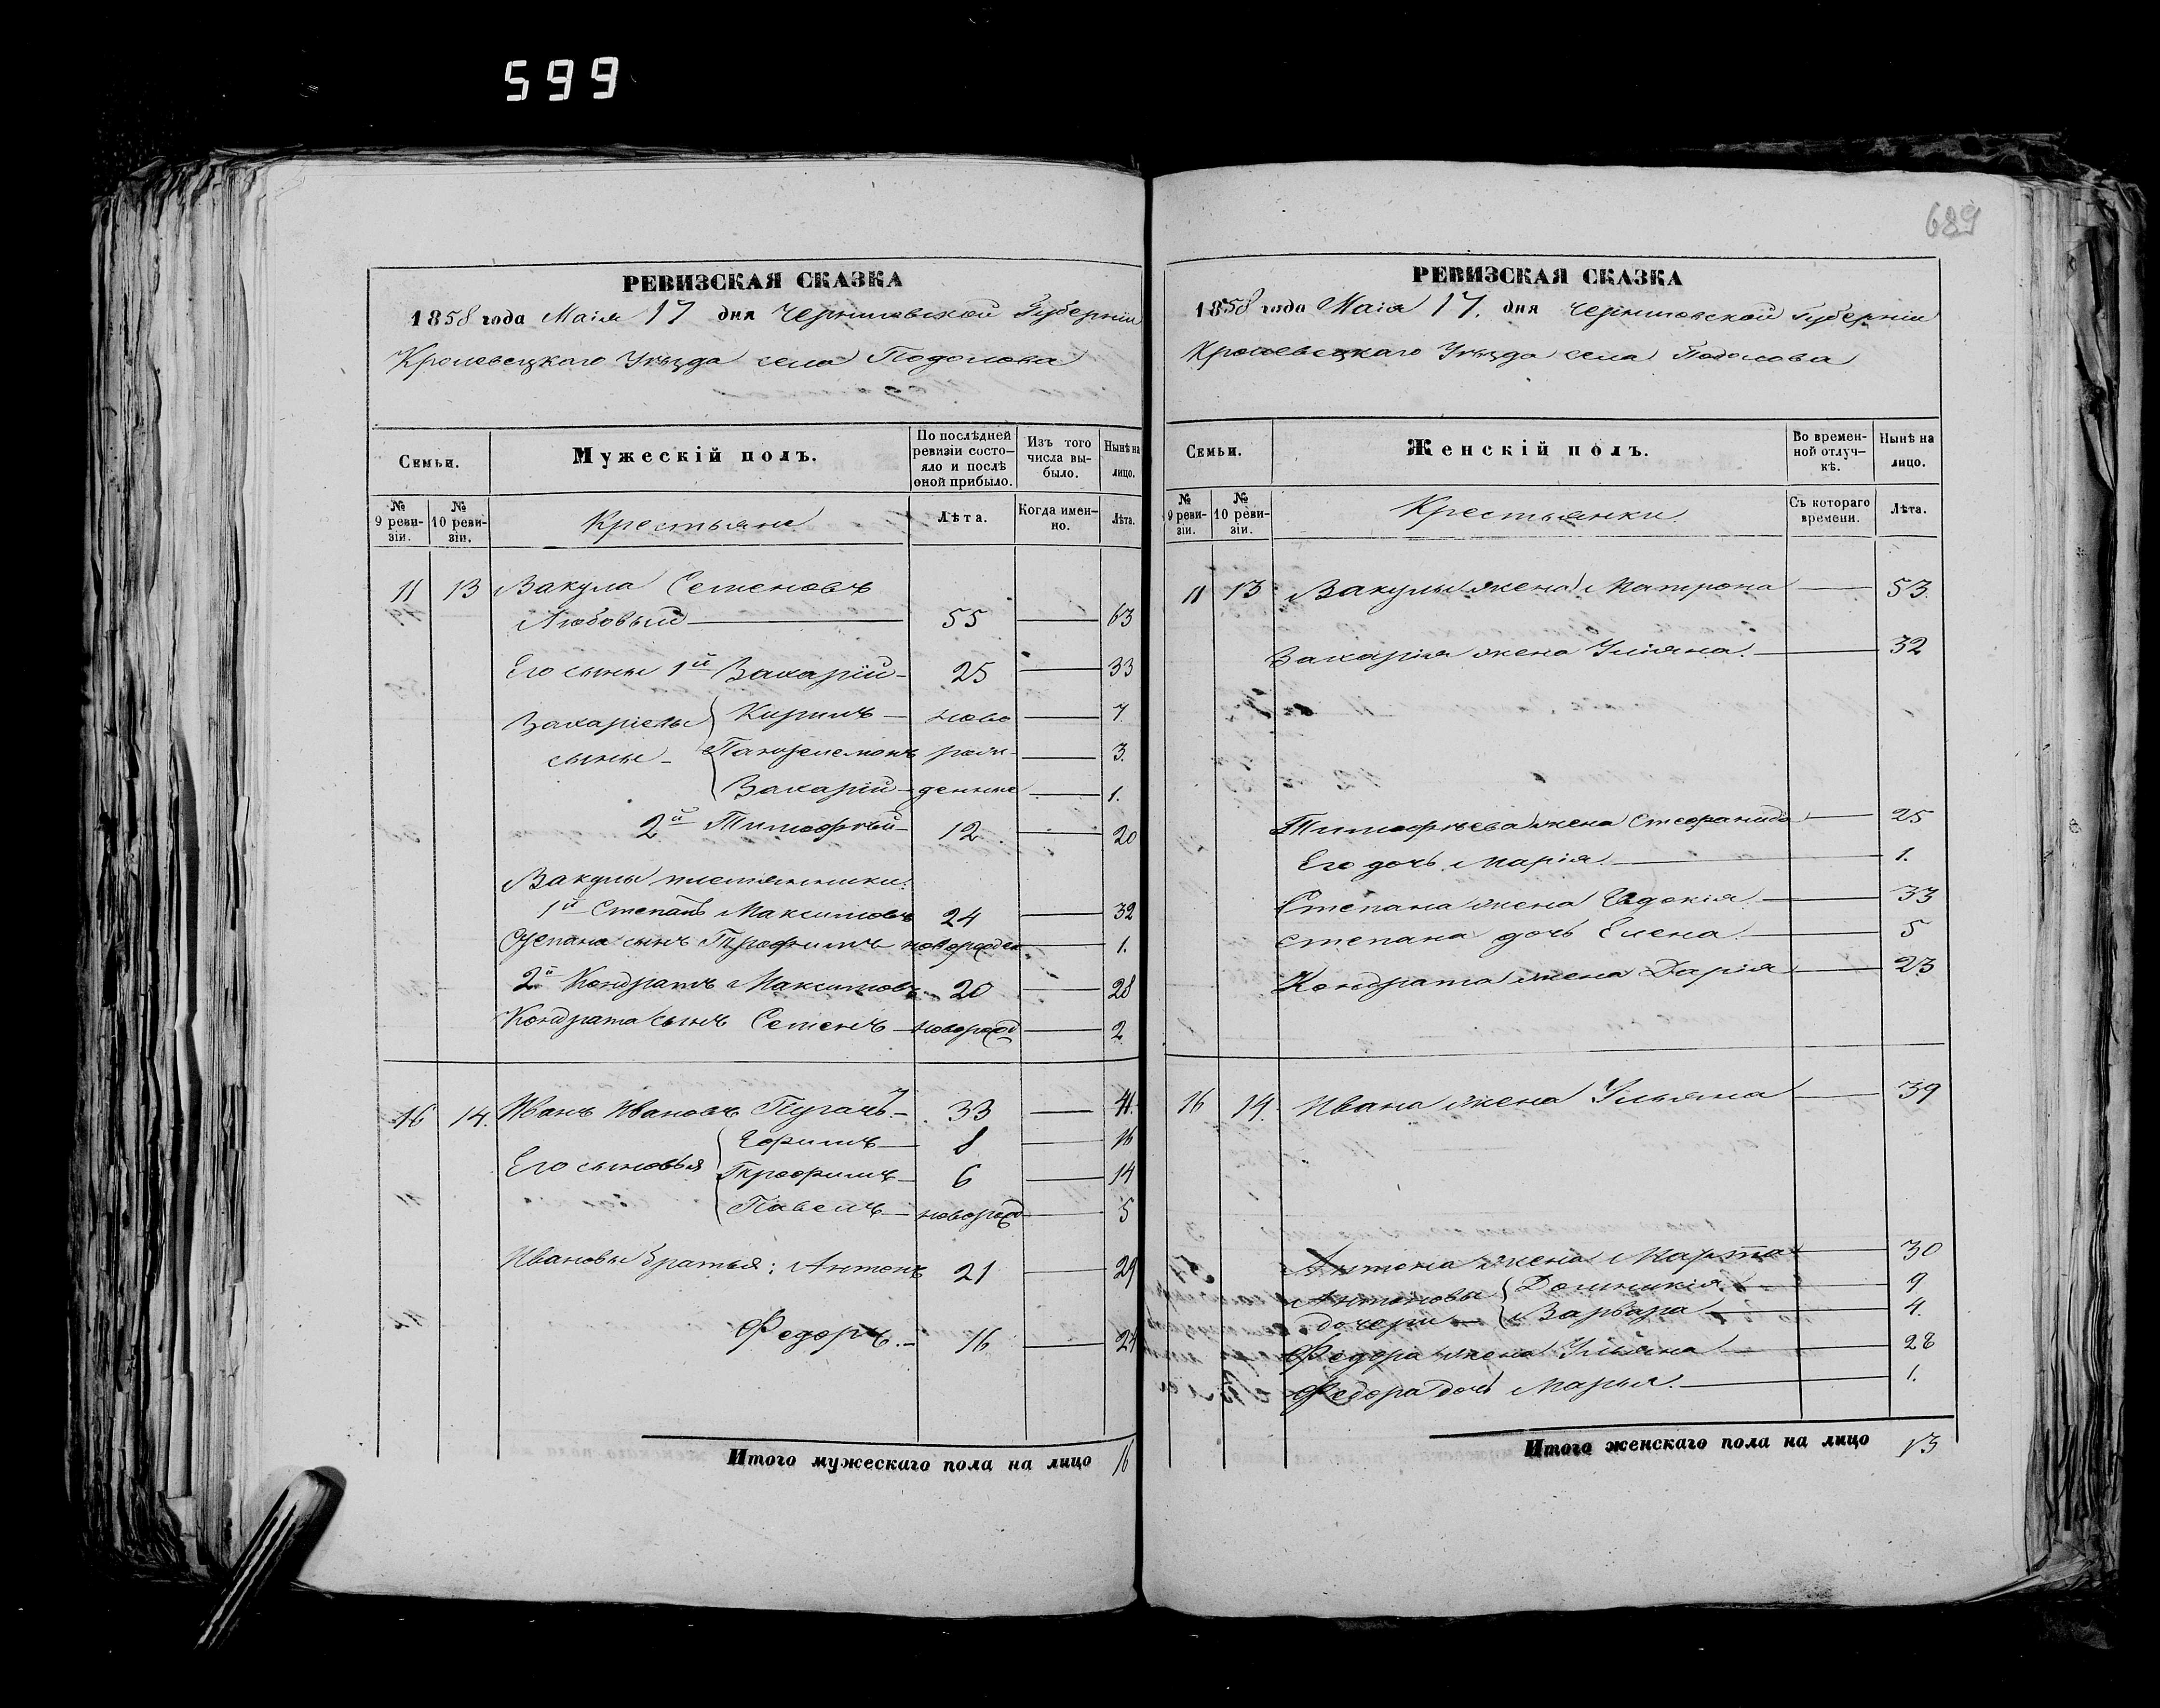 599
689
РЕВИЗСКАЯ СКАЗКА
1858 года Маія 17 дня Черниговской Губерніи
Кролевецкаго Уѣзда села Подолова
Семьи.
Мужескій полъ.
По послѣдней ревизіи состо-яло и послѣ оной прибыло.
Изъ того числа вы-было.
Нынѣ на лицо.
№ 9 реви-зіи.
№ 10 реви-зіи.
Крестьяне
Лѣта.
Когда имен-но.
Лѣта.
11 13 Вакула Семеновъ
Любовый 55 63
Его сыны 1й Захарій 25 33
Захаріевы Кирилъ ново 7
сыны Пантелемонъ рож- 3.
Захарій денные 1.
2й Тимофѣй 12 20
Вакулы племянники:
1й Степанъ Максимовъ 24 32
Степана сынъ Трофимъ новорожден 1.
2й Кондратъ Максимовъ 20 28
Кондрата сынъ Семенъ новорожд 2
16 14. Иванъ Ивановъ Пугачъ 33 41.
Ефимъ 8 16
Его сыновья Трофимъ 6 14
Павелъ новорожд 5
Ивановы братья: Антонъ 21 29
Федоръ. 16 24
Итого мужескаго пола на лицо 16
РЕВИЗСКАЯ СКАЗКА
1858 года Маія 17. дня Черниговской Губерніи
Кролевецкаго Уѣзда села Подолова
Семьи.
Женскій полъ.
Во времен-ной отлуч-кѣ.
Нынѣ на лицо.
№ 9 реви-зіи.
№ 10 реви-зіи.
Крестьянки
Съ котораго времени.
Лѣта.
11 13 Вакулы жена Матрона 53
Захарія жена Уліяна. 32
Тимофѣева жена Стефанида 25
Его дочь Марія. 1.
Степана жена Евдокія 33
Степана дочь Елена. 5
Кондрата жена Дарія 23
16 14. Ивана жена Ульяна 39
Антона жена Марта 30
Антоновы Домникія 9
дочери Варвара 4.
Федора жена Уліяна 28
Федора дочь Марья. 1.
Итого женскаго пола на лицо 13